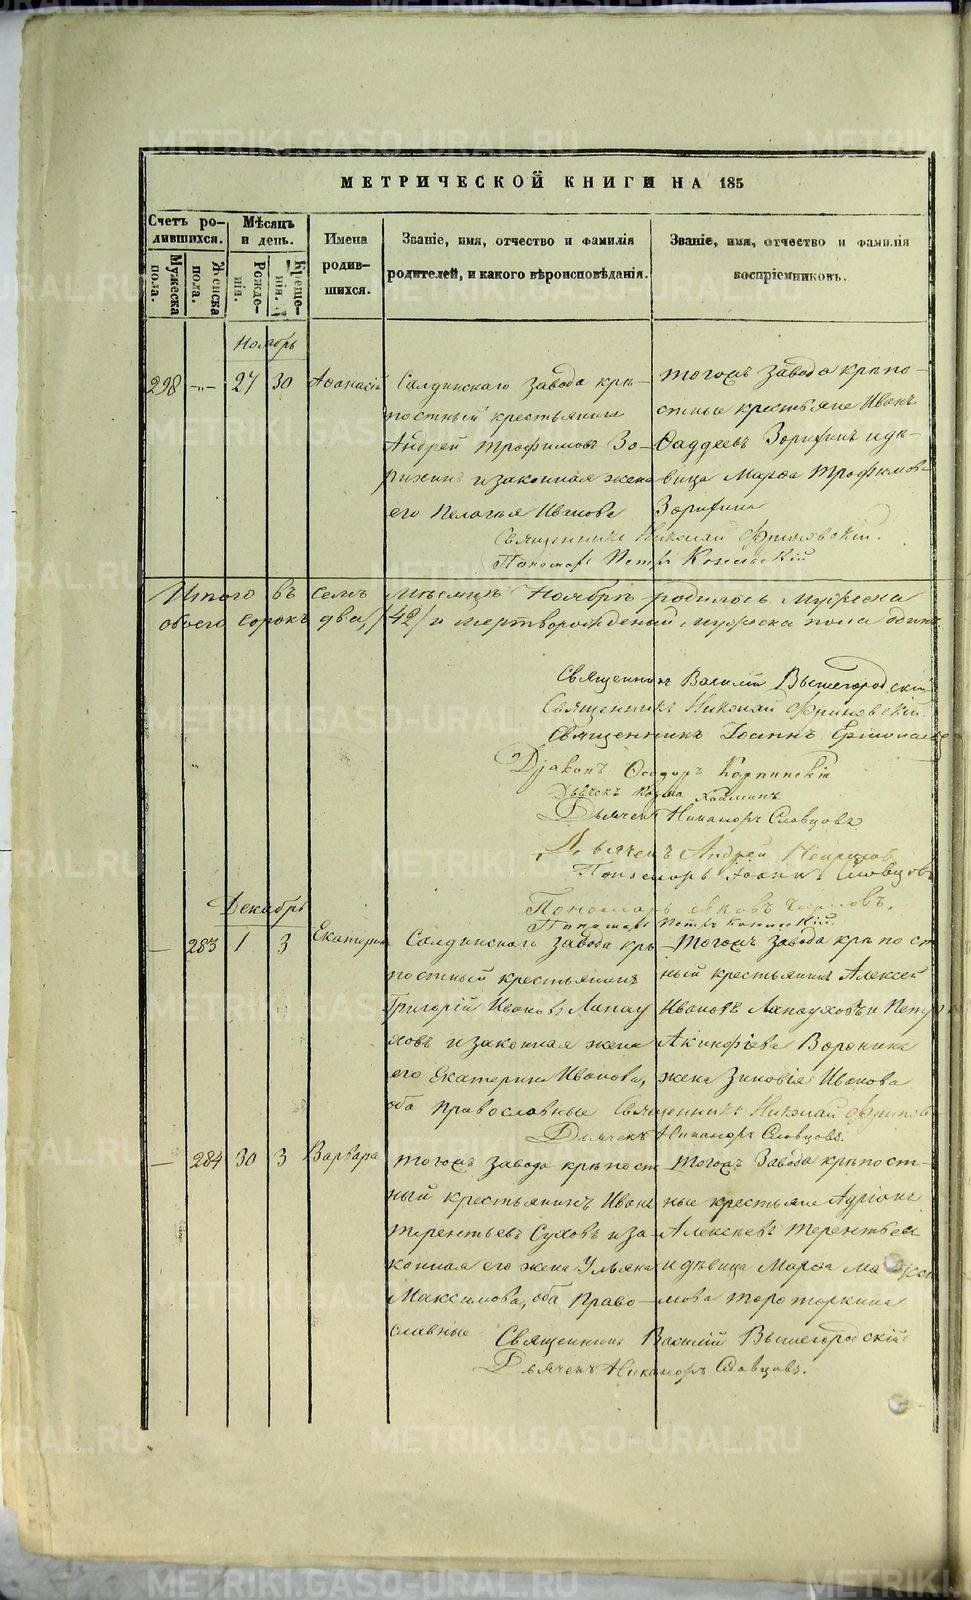 МЕТРИЧЕСКОЙ КНИГИ НА 185
Счетъ ро-
дившихся.
Мѣсяцъ
и день.
Имена
родив-
шихся.
Званіе, имя, отчество и фамилія
родителей, и какого вѣроисповѣданія.
Званіе, имя, отчество и фамилія
воспріемниковъ.
Мужеска пола.
Женска пола.
Рожде-
нія.
Креще-
нія.
Ноябрь
298 -„- 27 30 Аѳанасій
Салдинскаго завода крѣ-
постный крестьянинъ
Андрей Трофимовъ Зо-
рихинъ и законная жена
его Пелагья Иванова
тогожъ завода крѣпо-
стные крестьяне Иванъ
Ѳаддеевъ Зорихинъ и дѣ-
вица Марѳа Трофимова
Зорихина
Священникъ Николай Флоровскій.
Пономарь Петръ Козельскій
Итого въ семъ Мѣсяцѣ Ноябрѣ родилось мужеска
обоего сорокъ два, /42/ и мертворожденный мужеска пола одинъ.
Священникъ Василій Вышегородскій
Священникъ Николай Флоровскій.
Священникъ Іоаннъ
Діаконъ Ѳеодоръ Карпинскій
Дьячекъ Козма
Дьячекъ Никаноръ Словцовъ
Дьячекъ Андрей
Пономарь Іоаннъ Словцовъ
Пономарь Яковъ
Пономарь Петръ Козельскій.
Декабрь
— 283 1 3 Екатерина
Салдинскаго завода крѣ-
постный крестьянинъ
Григорій Ивановъ Лапау
ховъ и законная жена
его Екатерина Иванова,
оба православные
Тогожъ завода крѣпост
ный крестьянинъ Алексей
Ивановъ Лапауховъ и Петра
Акинфіева Воронина
жена Зиновія Иванова
Священникъ Николай
Дьячекъ Никаноръ Словцовъ.
— 284 30 3 Варвара
тогожъ завода крѣпост
ный крестьянинъ Иванъ
Терентьевъ Суховъ и за-
конная его жена Ульяна
Максимова, оба право-
славные
Тогожъ завода крѣпост-
ные крестьяне Адріанъ
Алексеевъ Терентьевъ
и дѣвица Марѳа
Священникъ Василій Вышегородскій
Дьячекъ Никаноръ Словцовъ.
METRIKI.GASO-URAL.RU